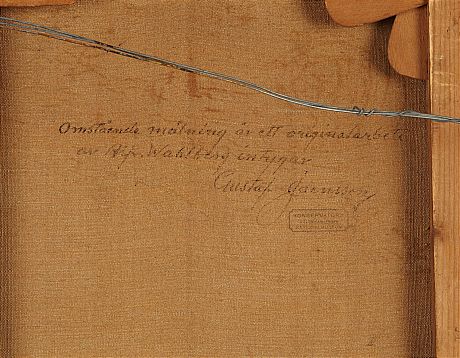 Omstående målning är ett originalarbete
av Alfr. Wahlberg intygar
Gustaf Jaensson
KONSERVATOR